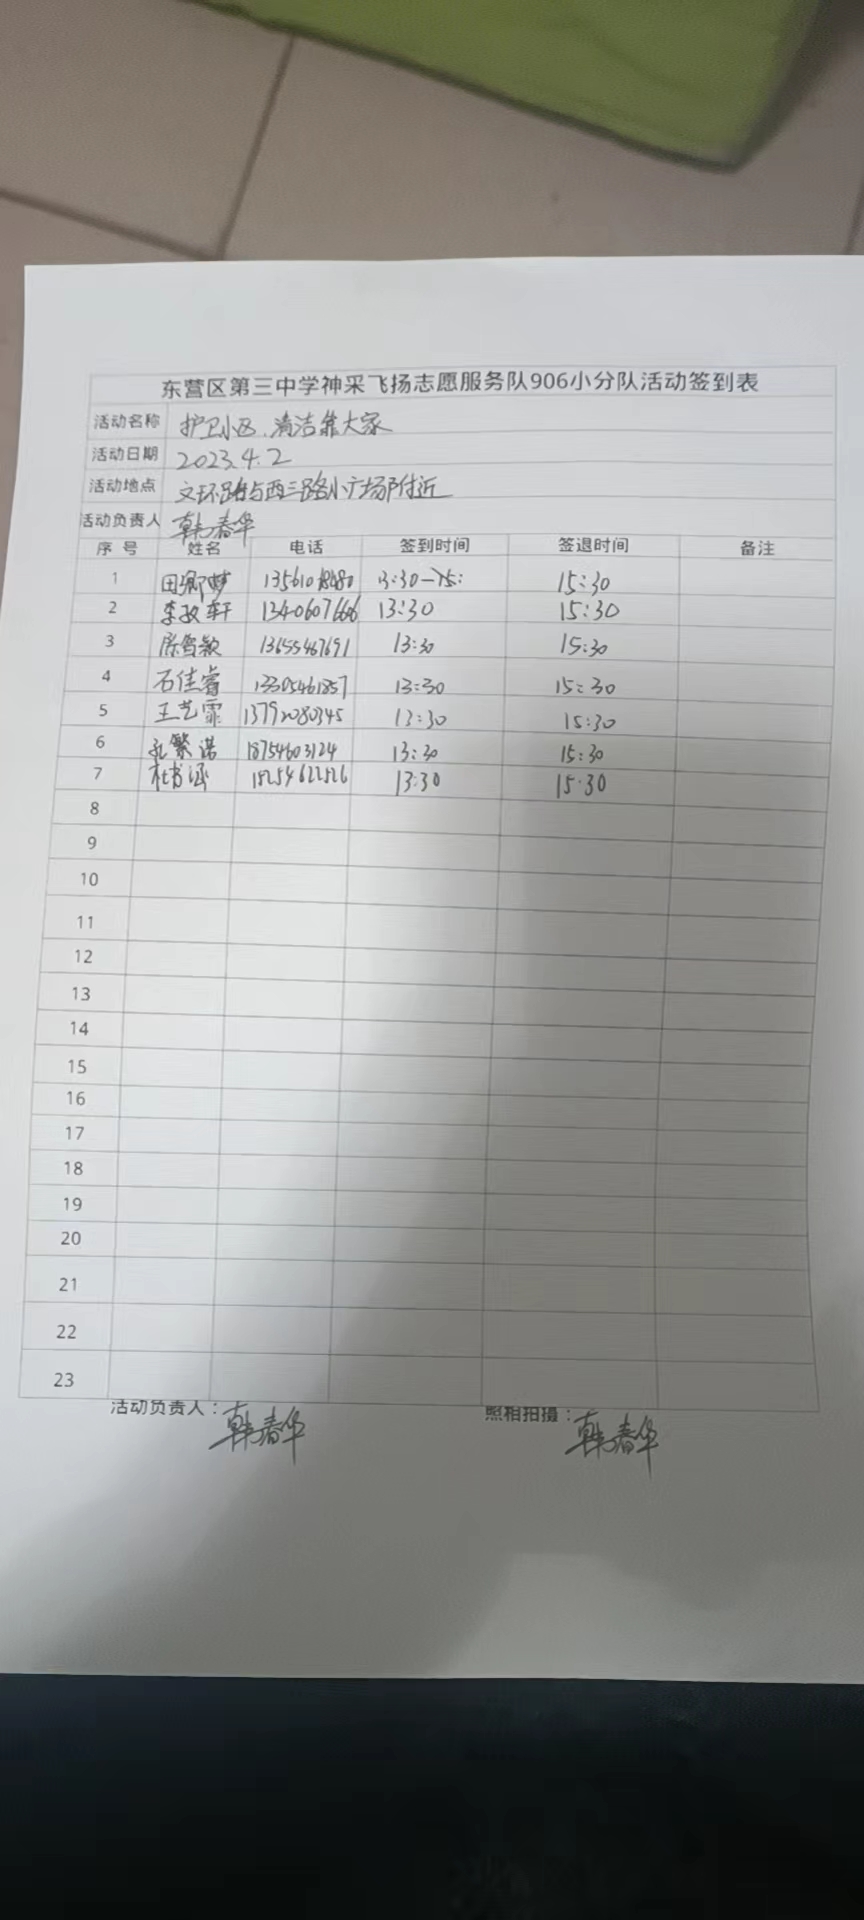 东营区第三中学神采飞扬志愿服务队906小分队活动签到表
活动名称 护卫小区、清洁靠大家
活动日期 2023.4.2
活动地点 文环路与西三路小广场附近
活动负责人 韩春华
序号 姓名 电话 签到时间 签退时间 备注
1 田卿梦 13:30—15: 15:30
2 李政轩 13:30 15:30
3 13655467691 13:30 15:30
4 石佳睿 13305461857 13:30 15:30
5 王艺霏 13792080345 13:30 15:30
6 孔繁诺 18754603124 13:30 15:30
7 杜书涵 13:30 15:30
8
9
10
11
12
13
14
15
16
17
18
19
20
21
22
23
活动负责人：韩春华 照相拍摄：韩春华